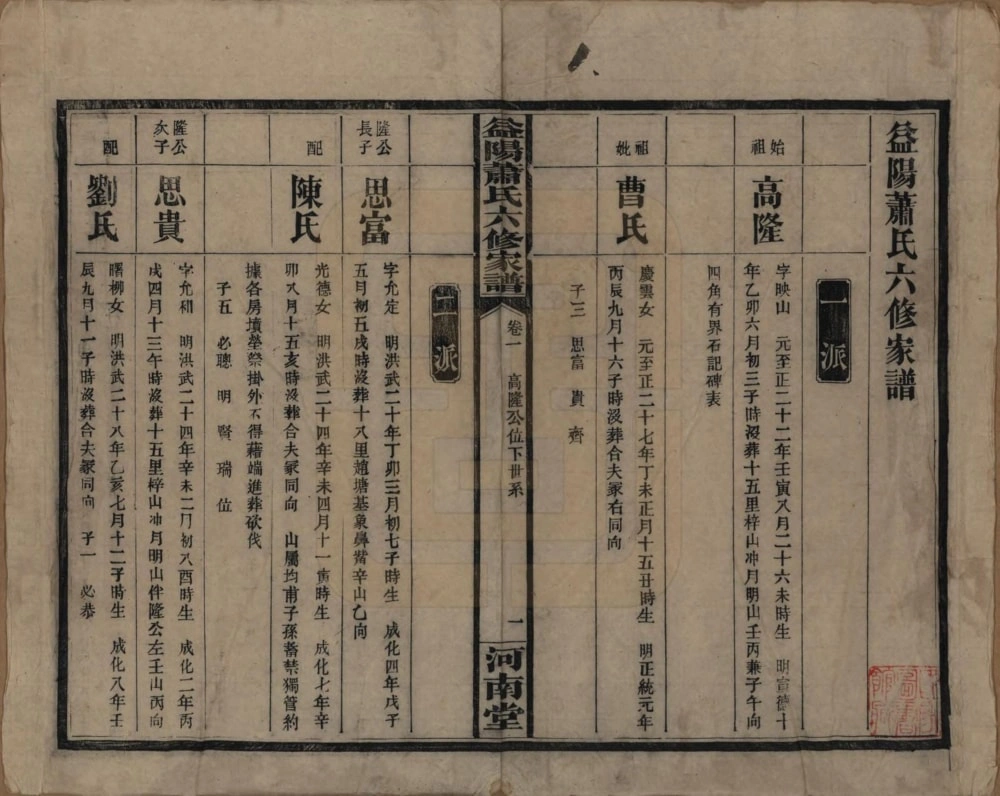 益陽蕭氏六修家譜
一派
始祖
高隆
字映山　元至正二十二年壬寅八月二十六未時生　明宣德十
年乙卯六月初三子時沒葬十五里梓山冲月明山壬丙兼子午向
四角有界石記碑表
祖妣
曹氏
慶雲女　元至正二十七年丁未正月十五丑時生　明正統元年
丙辰九月十六子時沒葬合夫冢右同向
子三　思富　貴　齊
益陽蕭氏六修家譜
卷一　高隆公位下世系
一
河南堂
二派
隆公長子
思富
字允定　明洪武二十年丁卯三月初七子時生　成化四年戊子
五月初五戌時沒葬十八里趙塘基象鼻嘴辛山乙向
配
陳氏
光德女　明洪武二十四年辛未四月十一寅時生　成化七年辛
卯八月十五亥時沒葬合夫冢同向　山屬均甫子孫蓄禁獨管約
據各房墳塋祭掛外不得藉端進葬砍伐
子五　必聰　明　賢　瑞　位
隆公次子
思貴
字允和　明洪武二十四年辛未二月初八酉時生　成化二年丙
戌四月十三午時沒葬十五里梓山冲月明山伴隆公左壬山丙向
配
劉氏
曙柳女　明洪武二十八年乙亥七月十二子時生　成化八年壬
辰九月十一子時沒葬合夫冢同向　子一　必恭